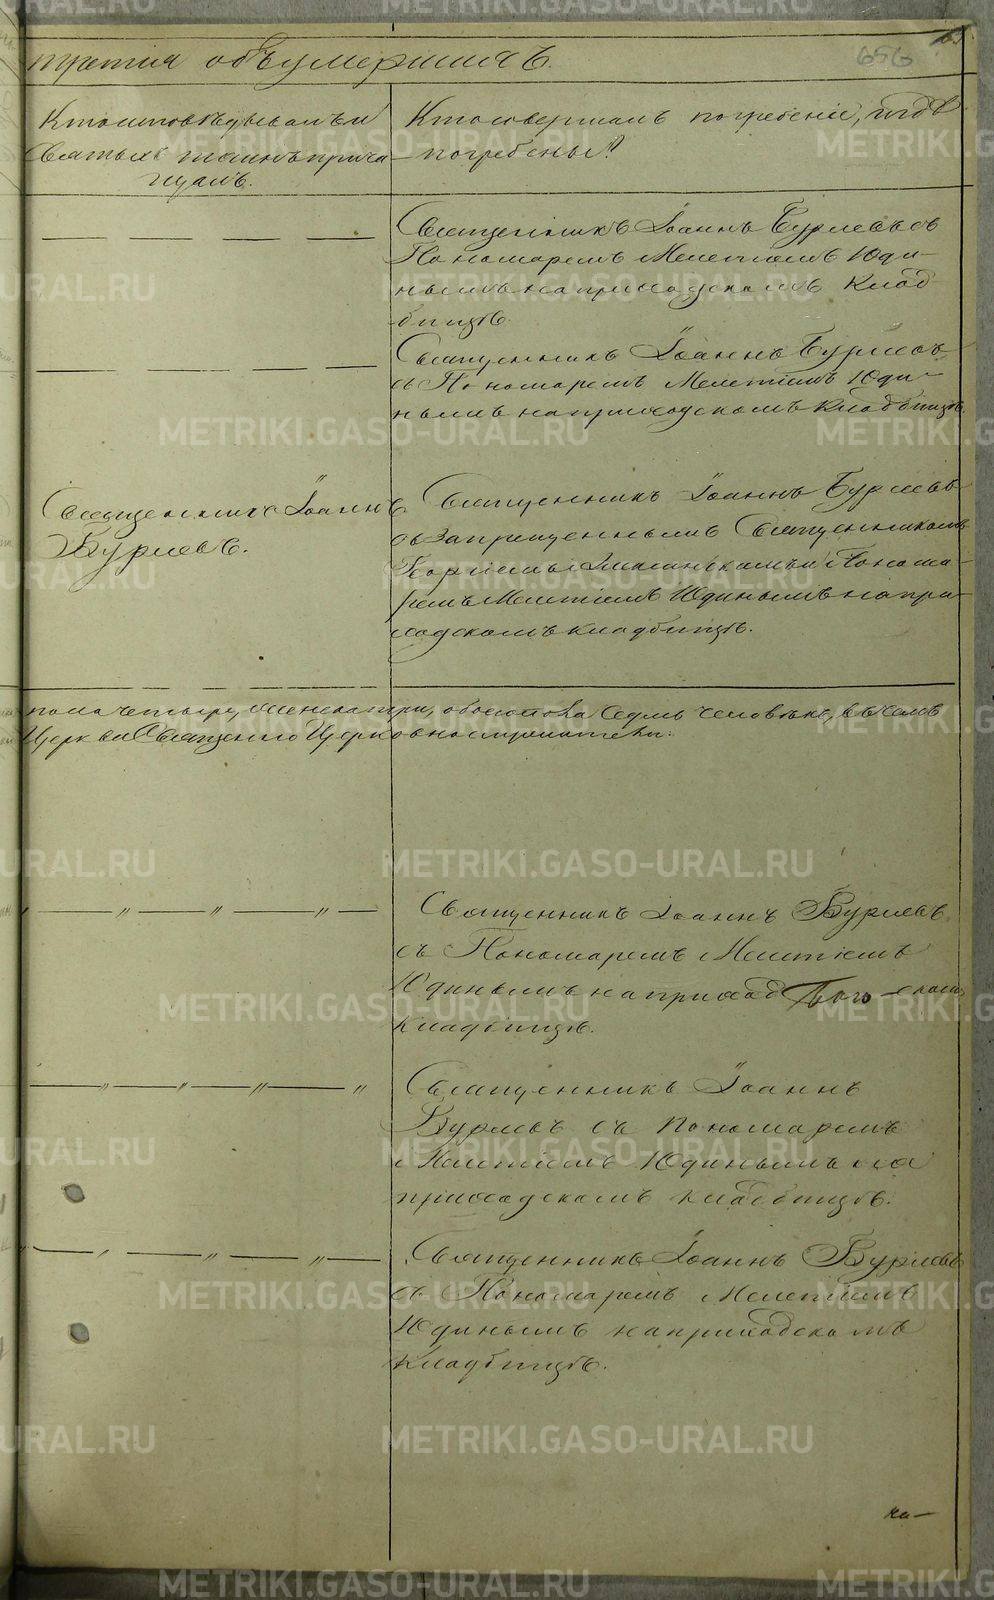 третия объ умершихъ.
656
Кто исповѣдывалъ и
Святыхъ таинъ прича-
щалъ.
Кто совершалъ погребеніе, и гдѣ
погребены?
Священникъ Іоаннъ Бурлевъ съ
Пономаремъ Мелетіемъ Юди-
нымъ на приходскомъ клад
бищѣ.
Священникъ Іоаннъ Бурлевъ
съ Пономаремъ Мелетіемъ Юди-
нымъ на приходскомъ кладбищѣ.
Священникъ Іоаннъ
Бурлевъ.
Священникъ Іоаннъ Бурлевъ
съ запрещеннымъ Священникомъ
и Понома-
ремъ Мелетіемъ Юдинымъ на при-
ходскомъ кладбищѣ.
пола четыре, женска три, обоего пола седмь человѣкъ, въ чемъ
Церкви Священно Церковнослужители:
Священникъ Іоаннъ Бурлевъ
съ Пономаремъ Мелетіемъ
Юдинымъ на приход
кладбищѣ.
Священникъ Іоаннъ
Бурлевъ съ Пономаремъ
Мелетіемъ Юдинымъ на
приходскомъ кладбищѣ.
Священникъ Іоаннъ Бурлевъ
съ Пономаремъ Мелетіемъ
Юдинымъ на приходскомъ
кладбищѣ.
METRIKI.GASO-URAL.RU